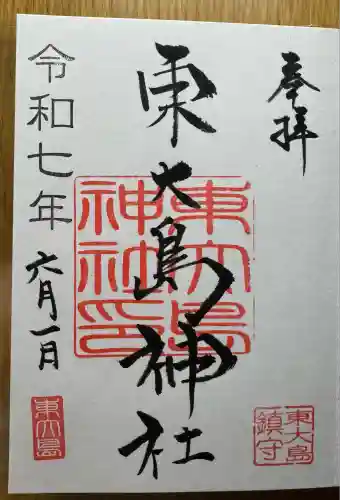 奉拝
東大島神社
東大島神社印
東大島鎮守
令和七年
六月一日
東大島